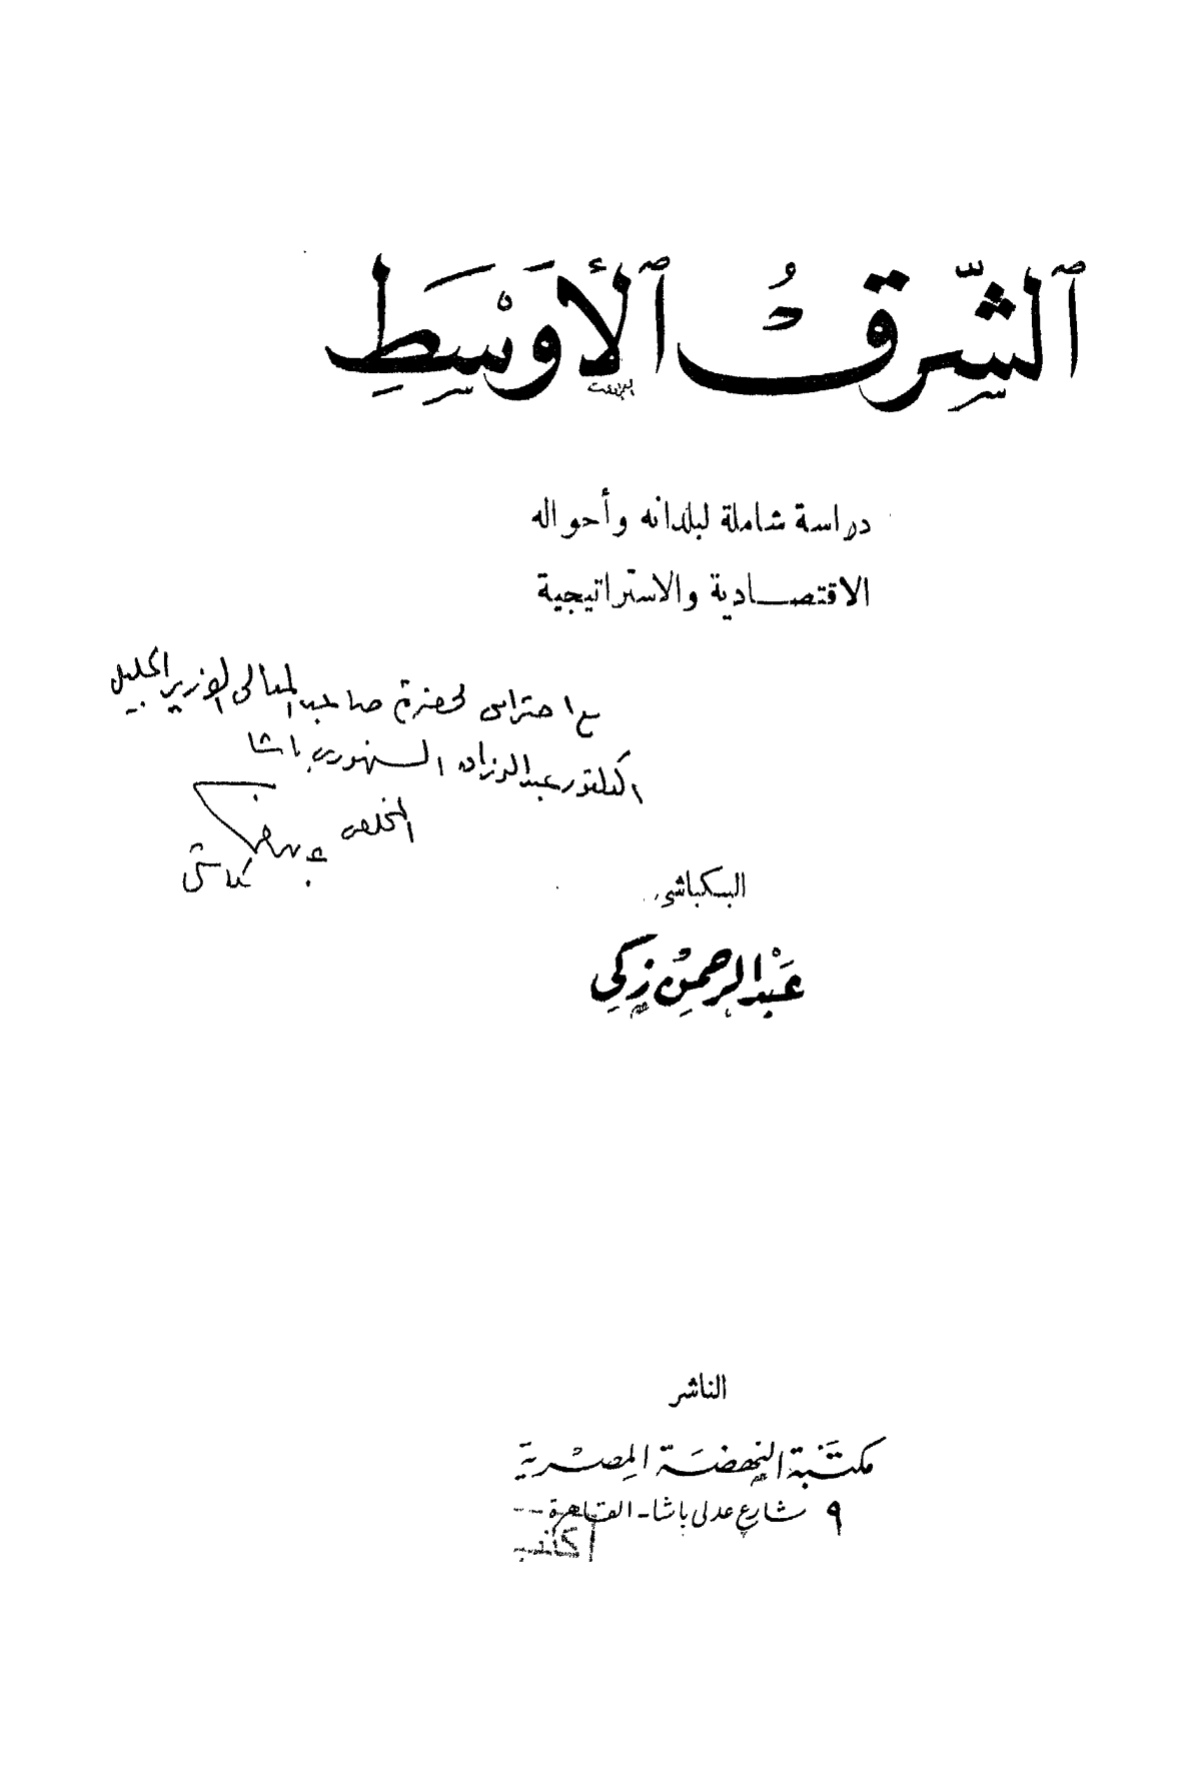 ٱلشِّرقُ ٱلأَوْسَطِ
دراسة شاملة لبلدانه وأحواله
الاقتصادية والاستراتيجية
مع احترامى لحضرة صاحب المعالى الوزير الجليل
الدكتور عبد الرزاق السنهورى باشا
المخلص
البكباشى
عَبْدالرحمْن زكِي
الناشر
مكتَبة النهضَة المِصْرية
٩ شارع عدلى باشا - القاهرة